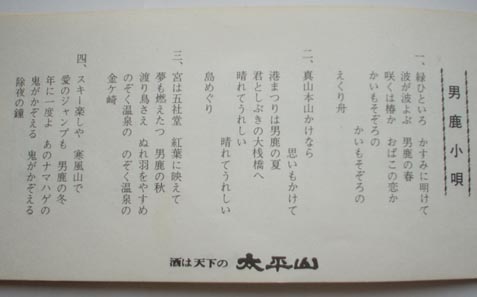 男鹿小唄
一、緑ひといろ　かすみに明けて
波が波よぶ　男鹿の春
咲くは椿か　おばこの恋か
かいもそぞろの
かいもそぞろの
えくり舟
二、真山本山かけなら
思いもかけて
港まつりは男鹿の夏
君としぶきの大桟橋へ
晴れてうれしい
晴れてうれしい
島めぐり
三、宮は五社堂　紅葉に映えて
夢も燃えたつ　男鹿の秋
渡り鳥さえ　ぬれ羽をやすめ
のぞく温泉の　のぞく温泉の
金ヶ崎
四、スキー楽しや　寒風山で
愛のジャンプも　男鹿の冬
年に一度よ　あのナマハゲの
鬼がかぞえる　鬼がかぞえる
除夜の鐘
酒は天下の 太平山